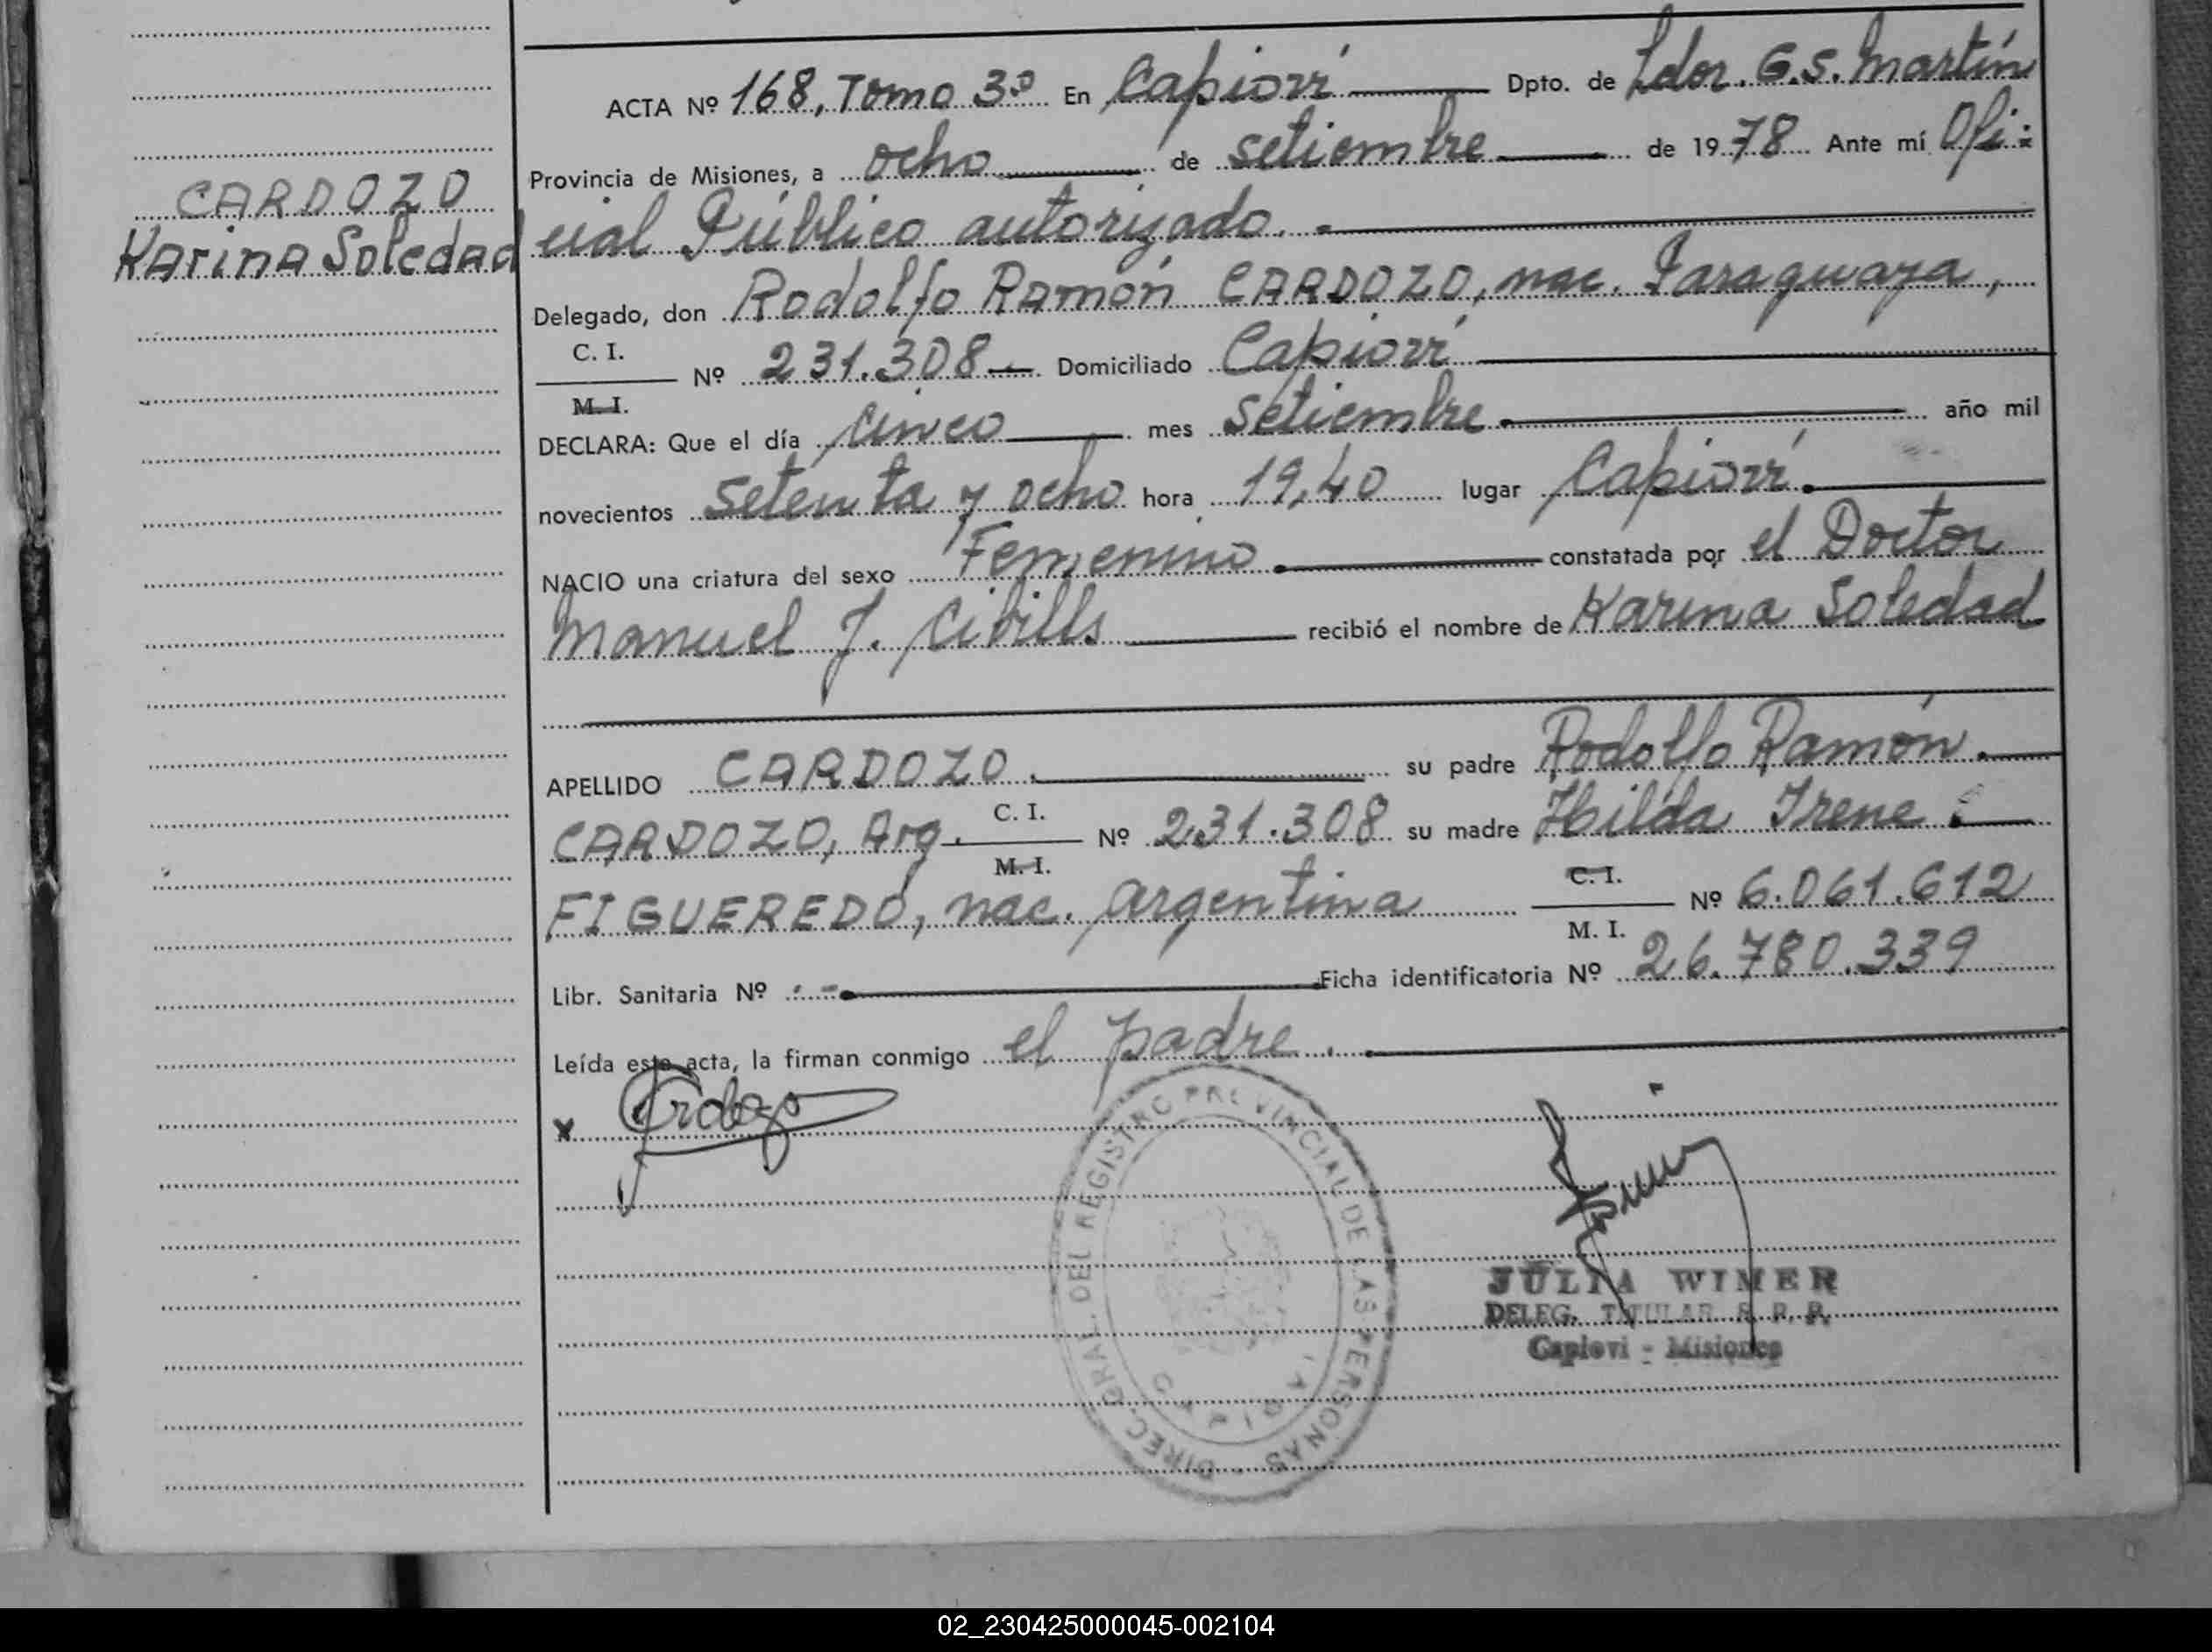 CARDOZO
Karina Soledad
ACTA Nº 168, Tomo 3º En Capioví Dpto. de Ldor. G.S. Martín
Provincia de Misiones, a ocho de setiembre de 1978 Ante mí Ofi-
cial Público autorizado.
Delegado, don Rodolfo Ramón CARDOZO, nac. Paraguaya,
C. I.
Nº 231.308 Domiciliado Capioví
M. I.
DECLARA: Que el día cinco mes setiembre año mil
novecientos setenta y ocho hora 19,40 lugar Capioví.
NACIO una criatura del sexo Femenino. constatada por el Doctor
Manuel J. Cibills recibió el nombre de Karina Soledad
APELLIDO CARDOZO. su padre Rodolfo Ramón.
CARDOZO, Arg. C. I. Nº 231.308 su madre Hilda Irene
M. I.
FIGUEREDO, nac. argentina C. I. Nº 6.061.612
M. I.
Libr. Sanitaria Nº Ficha identificatoria Nº 26.780.339
Leída este acta, la firman conmigo el padre.
x Cardozo
DIREC. GRAL. DEL REGISTRO PROVINCIAL DE LAS PERSONAS
JULIA WIMER
DELEG. TITULAR R. P. P.
Capiovi - Misiones
02_230425000045-002104